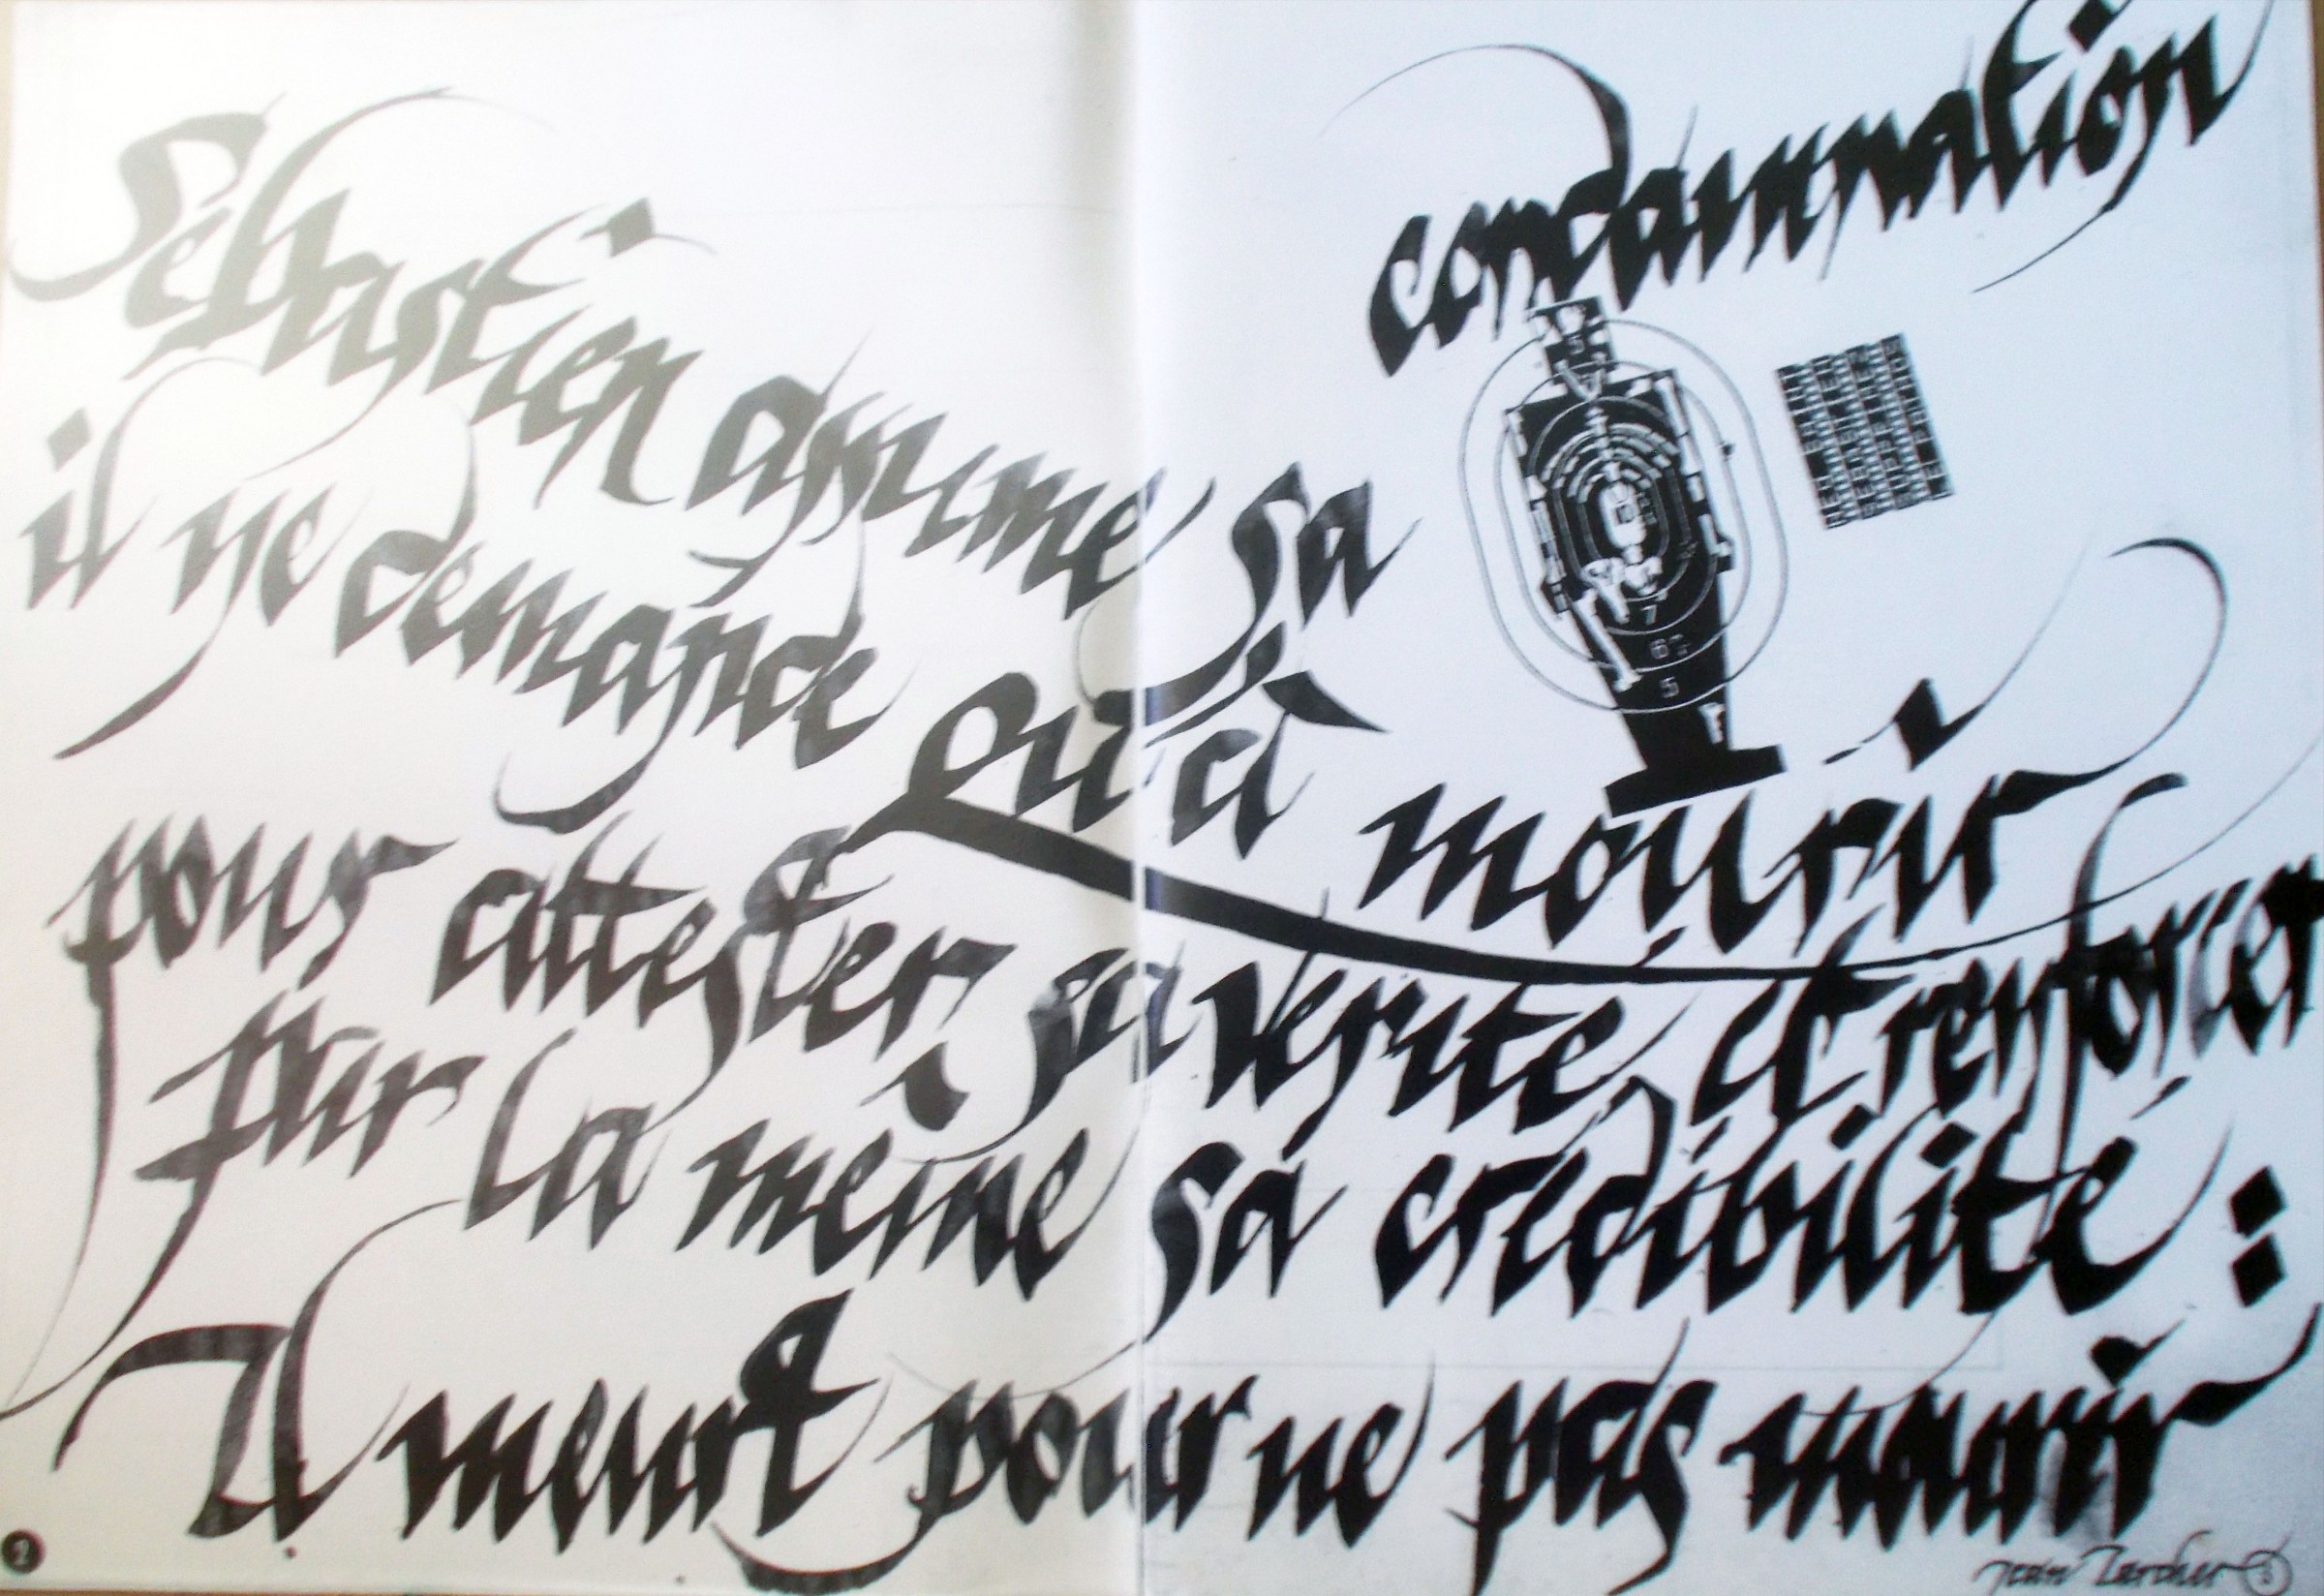 Sébastien assume sa condamnation
il ne demande Qu'à mourir
pour attester sa vérité et renforcer
par la même sa crédibilité :
Il meurt pour ne pas mourir
5
7
6
5
2